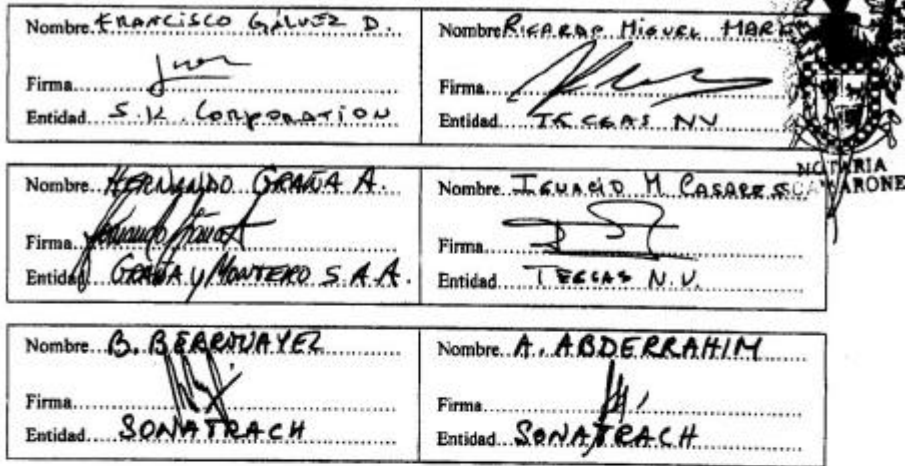 Nombre FRANCISCO GÁLVEZ D.
Firma
Entidad S.K. CORPORATION
Nombre RICARDO MIGUEL MAR
Firma
Entidad TECGAS NV
NOTARIA
Nombre HERNANDO GRAÑA A.
Firma
Entidad GRAÑA y MONTERO S.A.A.
Nombre IGNACIO M CASARES
Firma
Entidad TECGAS N.V.
Nombre B. BERROUAYEL
Firma
Entidad SONATRACH
Nombre A. ABDERRAHIM
Firma
Entidad SONATRACH